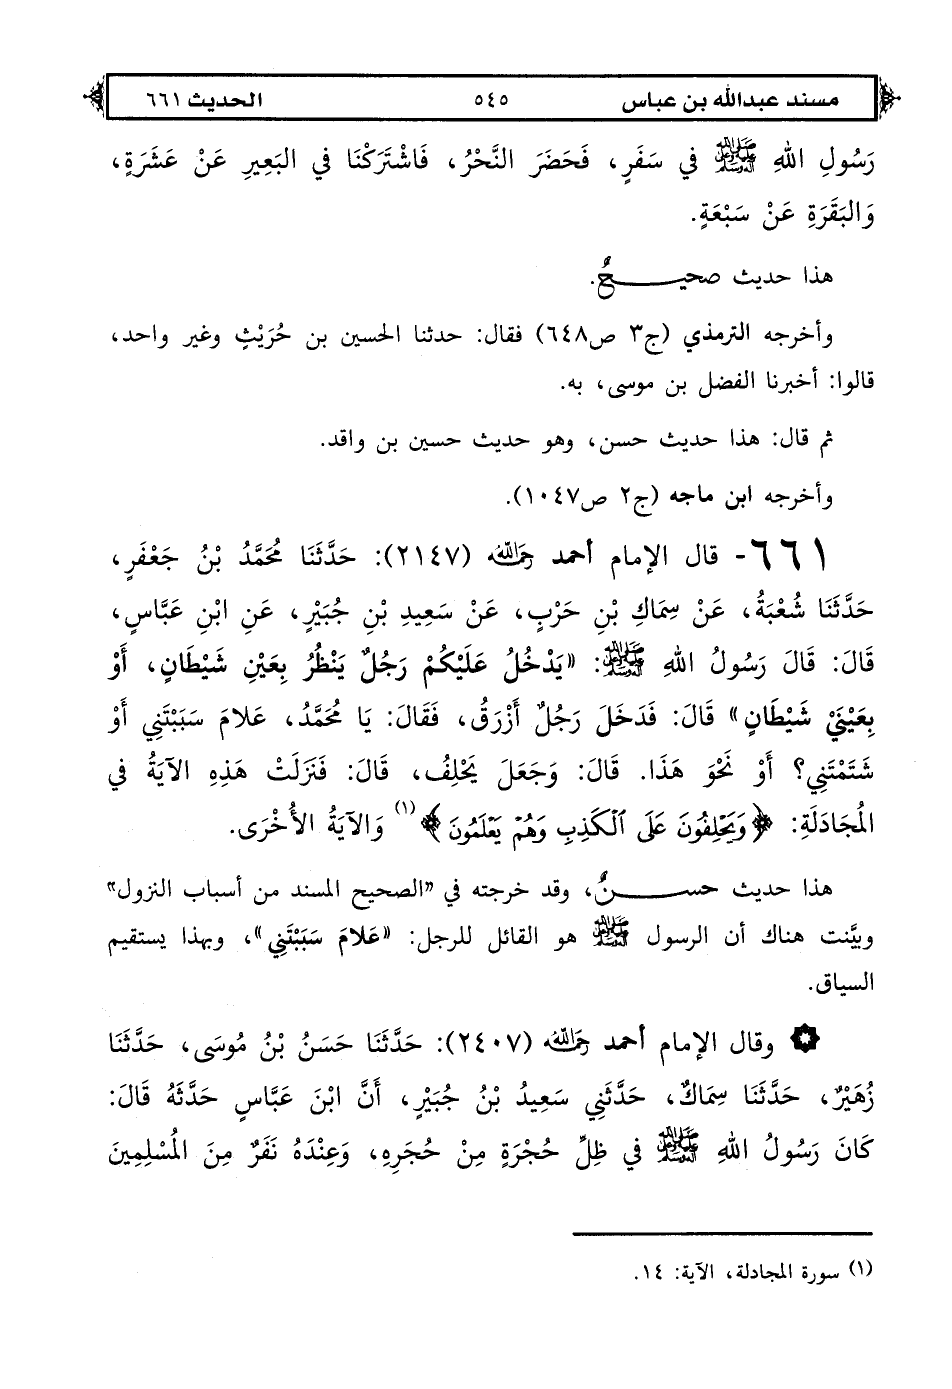 مسند عبدالله بن عباس ٥٤٥ الحديث ٦٦١
رَسُولِ اللهِ ﷺ فِي سَفَرٍ، فَحَضَرَ النَّحْرُ، فَاشْتَرَكْنَا فِي البَعِيرِ عَنْ عَشَرَةٍ،
وَالبَقَرَةِ عَنْ سَبْعَةٍ.
هذا حديث صحيـــــــحٌ.
وأخرجه الترمذي (ج٣ ص٦٤٨) فقال: حدثنا الحسين بن حُرَيْثٍ وغير واحد،
قالوا: أخبرنا الفضل بن موسى، به.
ثم قال: هذا حديث حسن، وهو حديث حسين بن واقد.
وأخرجه ابن ماجه (ج٢ ص١٠٤٧).
٦٦١- قال الإمام أحمد رحمه الله (٢١٤٧): حَدَّثَنَا مُحَمَّدُ بْنُ جَعْفَرٍ،
حَدَّثَنَا شُعْبَةُ، عَنْ سِمَاكِ بْنِ حَرْبٍ، عَنْ سَعِيدِ بْنِ جُبَيْرٍ، عَنِ ابْنِ عَبَّاسٍ،
قَالَ: قَالَ رَسُولُ اللهِ ﷺ: «يَدْخُلُ عَلَيْكُمْ رَجُلٌ يَنْظُرُ بِعَيْنِ شَيْطَانٍ، أَوْ
بِعَيْنَيْ شَيْطَانٍ» قَالَ: فَدَخَلَ رَجُلٌ أَزْرَقُ، فَقَالَ: يَا مُحَمَّدُ، عَلامَ سَبَبْتَنِي أَوْ
شَتَمْتَنِي؟ أَوْ نَحْوَ هَذَا. قَالَ: وَجَعَلَ يَحْلِفُ، قَالَ: فَنَزَلَتْ هَذِهِ الآيَةُ فِي
المُجَادَلَةِ: ﴿وَيَحْلِفُونَ عَلَى ٱلْكَذِبِ وَهُمْ يَعْلَمُونَ﴾(١) وَالآيَةُ الأُخْرَى.
هذا حديث حســـــنٌ، وقد خرجته في «الصحيح المسند من أسباب النزول»
وبيَّنت هناك أن الرسول ﷺ هو القائل للرجل: «عَلامَ سَبَبْتَنِي»، وبهذا يستقيم
السياق.
وقال الإمام أحمد رحمه الله (٢٤٠٧): حَدَّثَنَا حَسَنُ بْنُ مُوسَى، حَدَّثَنَا
زُهَيْرٌ، حَدَّثَنَا سِمَاكٌ، حَدَّثَنِي سَعِيدُ بْنُ جُبَيْرٍ، أَنَّ ابْنَ عَبَّاسٍ حَدَّثَهُ قَالَ:
كَانَ رَسُولُ اللهِ ﷺ فِي ظِلِّ حُجْرَةٍ مِنْ حُجَرِهِ، وَعِنْدَهُ نَفَرٌ مِنَ المُسْلِمِينَ
(١) سورة المجادلة، الآية: ١٤.